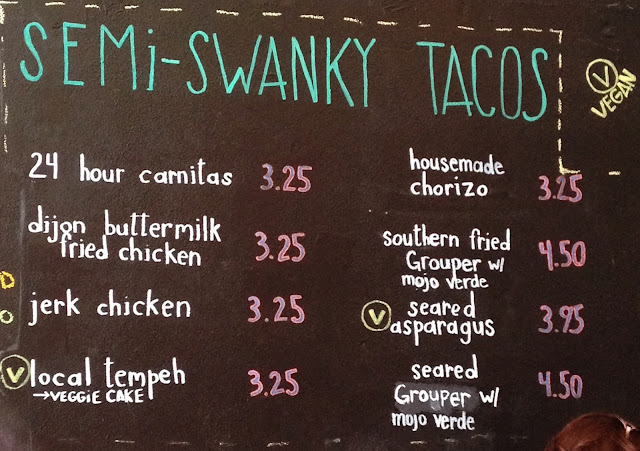 SEMi-SWANKY TACOS
V
VEGAN
24 hour carnitas 3.25
dijon buttermilk
fried chicken 3.25
jerk chicken 3.25
V local tempeh 3.25
→VEGGIE CAKE
housemade
chorizo 3.25
southern fried
Grouper w/ 4.50
mojo verde
seared
V asparagus 3.95
seared
Grouper w/ 4.50
mojo verde
D
O